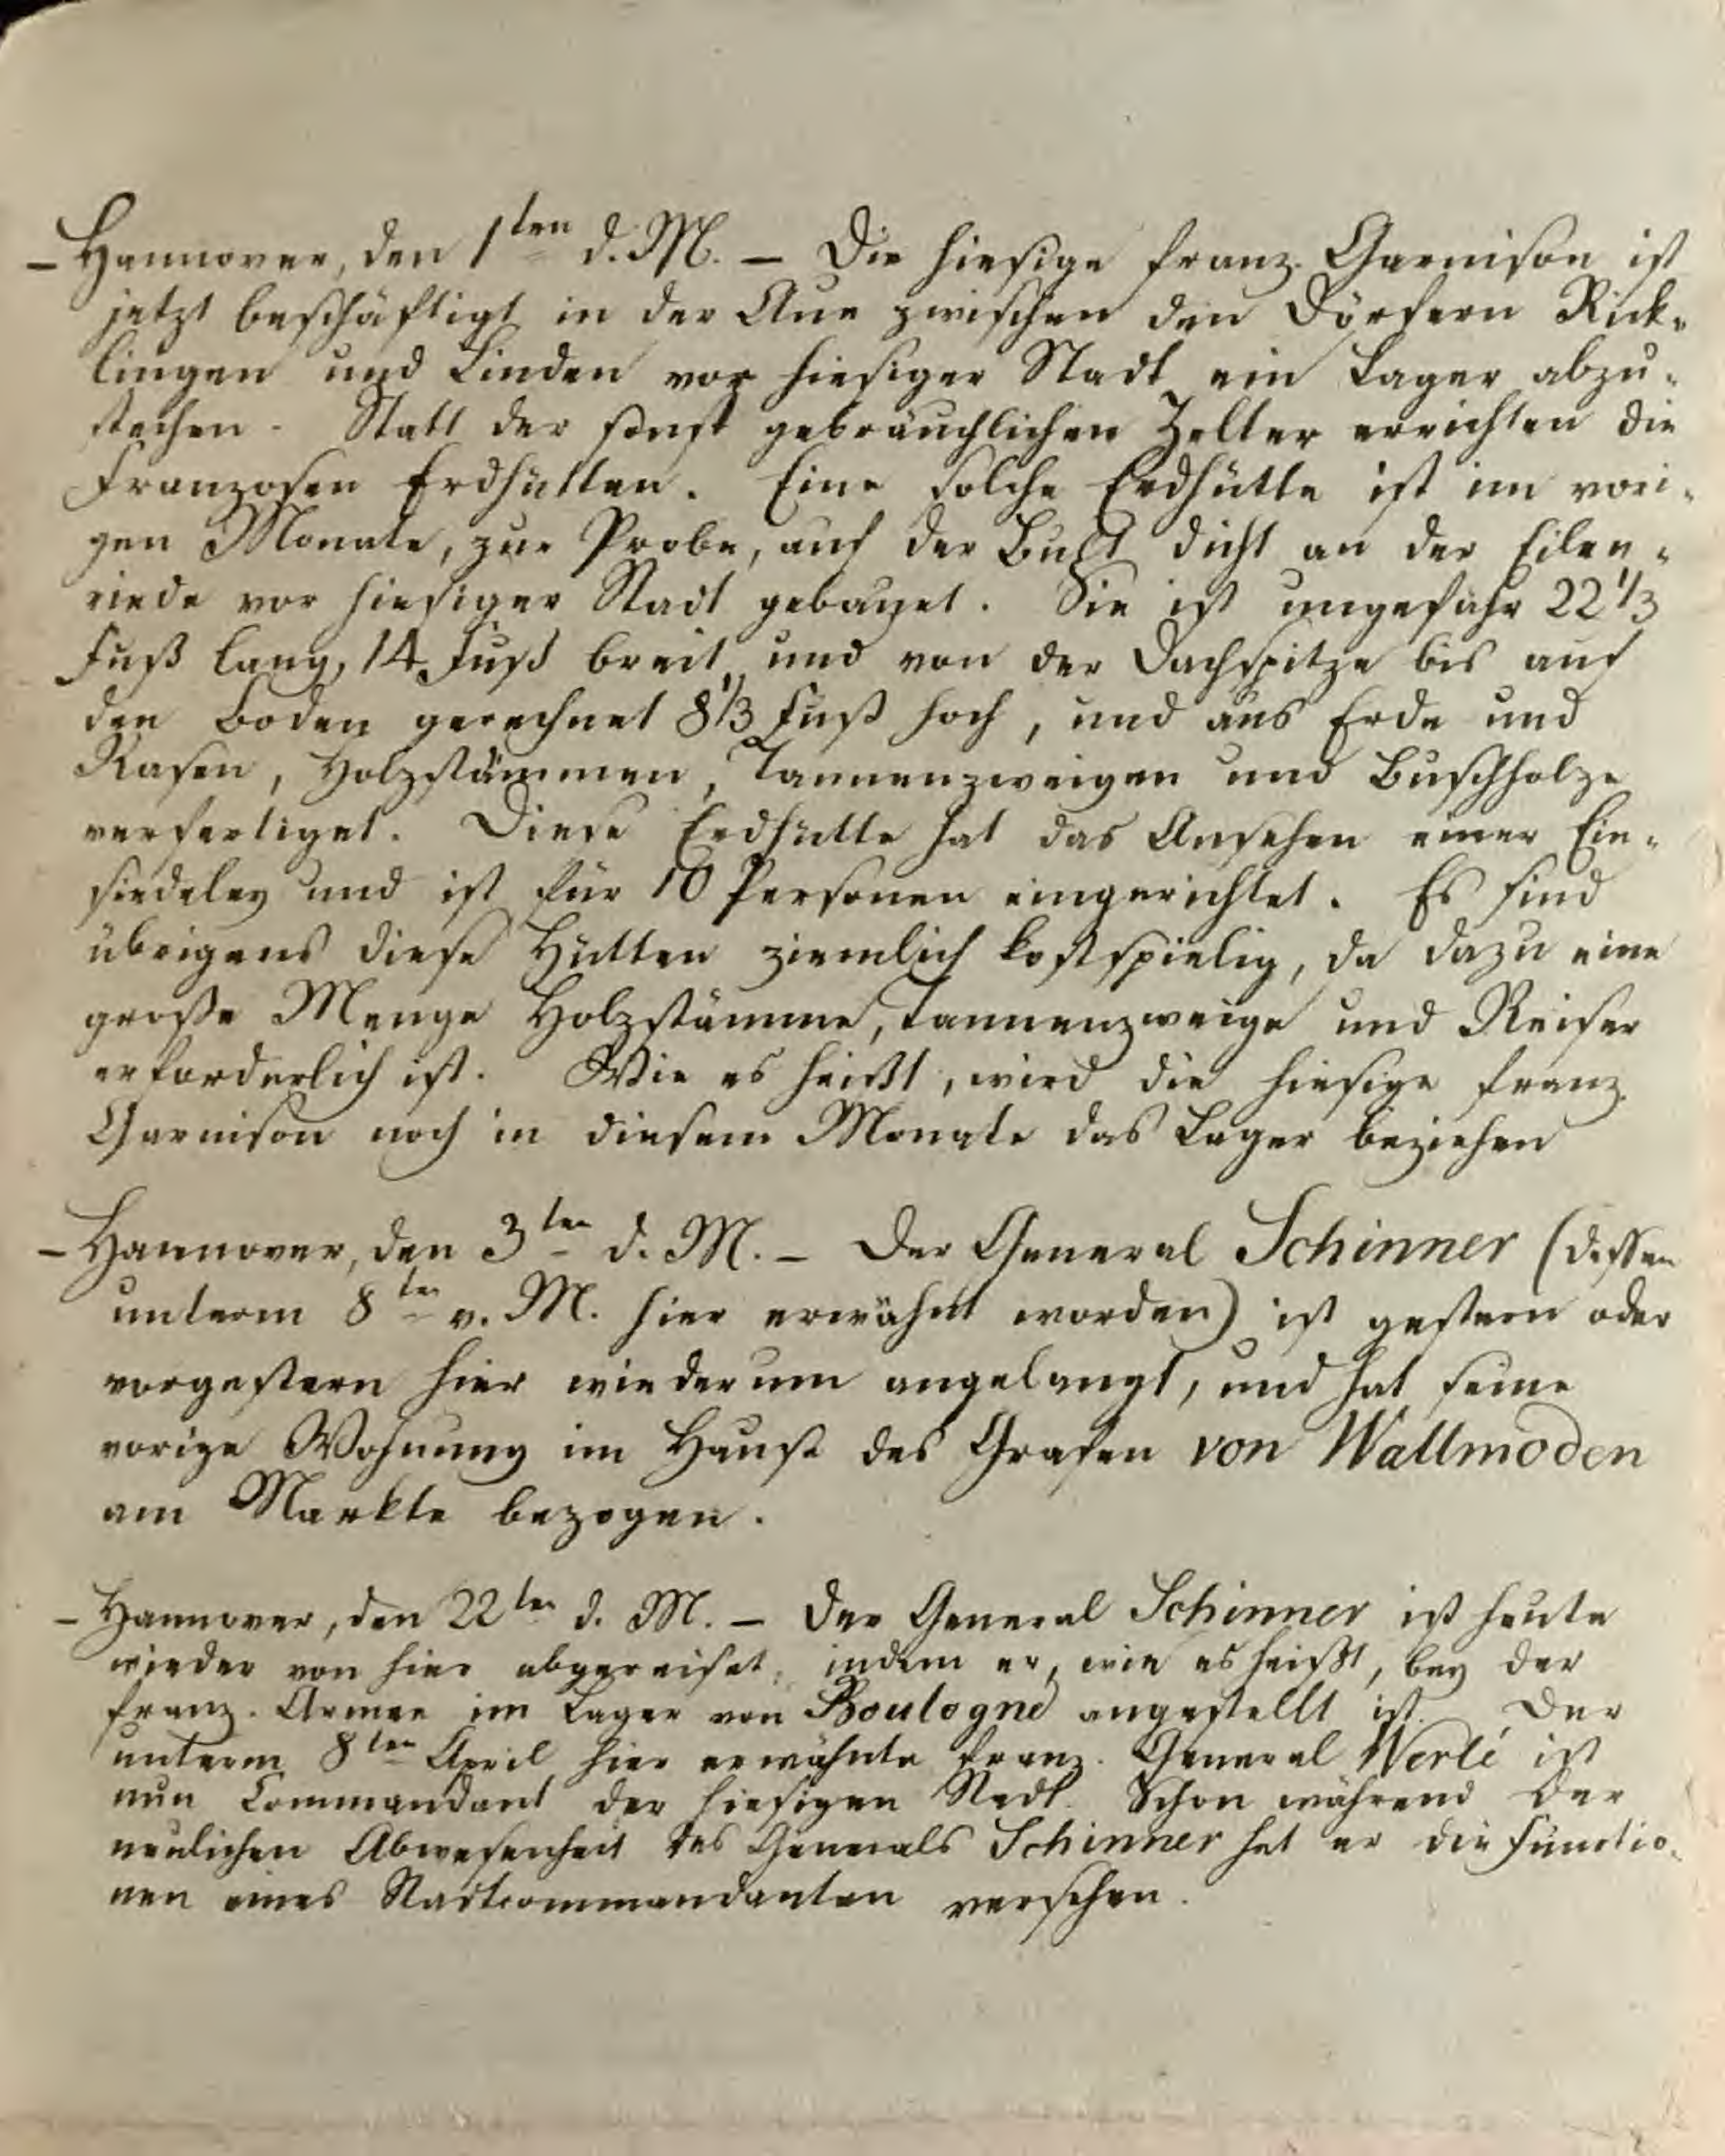 – Hannover, den 1ten d. M. – Die hiesige franz. Garnison ist
jetzt beschäftigt in der Aue zwischen den Dörfern Rick-
lingen und Linden vor hiesiger Stadt ein Lager abzu-
stechen. Statt der sonst gebräuchlichen Zelter errichten die
Franzosen Erdhütten. Eine solche Erdhütte ist im vori-
gen Monate, zur Probe, auf der Bult dicht an der Eilen-
riede vor hiesiger Stadt gebauet. Sie ist ungefähr 22 1/3
Fuß lang, 14 Fuß breit und von der Dachspitze bis auf
den Boden gerechnet 8 1/3 Fuß hoch, und aus Erde und
Rasen, Holzstämmen, Tannenzweigen und Buschholze
verfertiget. Diese Erdhütte hat das Ansehen einer Ein-
siedeley und ist für 10 Personen eingerichtet. Es sind
übrigens diese Hütten ziemlich kostspielig, da dazu eine
große Menge Holzstämme, Tannenzweige und Reiser
erforderlich ist. Wie es heißt, wird die hiesige franz.
Garnison noch in diesem Monate das Lager beziehen
– Hannover, den 3ten d. M. – Der General Schinner (dessen
unterm 8ten v. M. hier erwähnt worden) ist gestern oder
vorgestern hier wiederum angelangt, und hat seine
vorige Wohnung im Hause des Grafen von Wallmoden
am Markte bezogen.
– Hannover, den 22ten d. M. – Der General Schinner ist heute
wieder von hier abgereiset, indem er, wie es heißt, bey der
franz. Armee im Lager von Boulogne angestellt ist. Der
unterm 8ten April hier erwähnte franz. General Werlé ist
nun Commandant der hiesigen Stadt. Schon während der
neulichen Abwesenheit des Generals Schinner hat er die Functio-
nen eines Stadtcommandanten versehen.